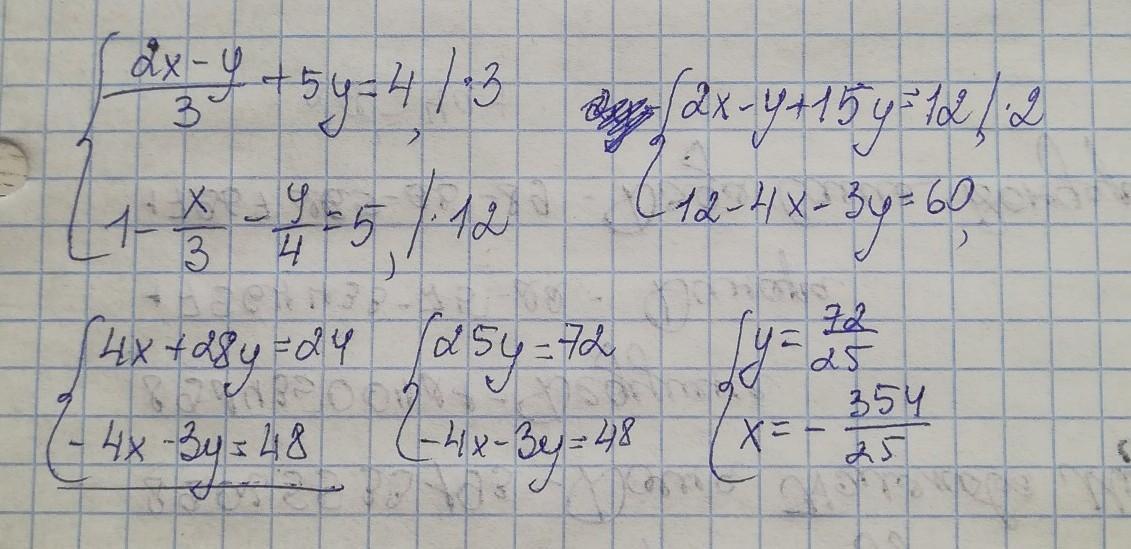 (2x-y)/3 + 5y = 4, | · 3
1 - x/3 - y/4 = 5, | · 12
2x - y + 15y = 12, | · 2
12 - 4x - 3y = 60,
4x + 28y = 24
-4x - 3y = 48
25y = 72
-4x - 3y = 48
y = 72/25
x = - 354/25